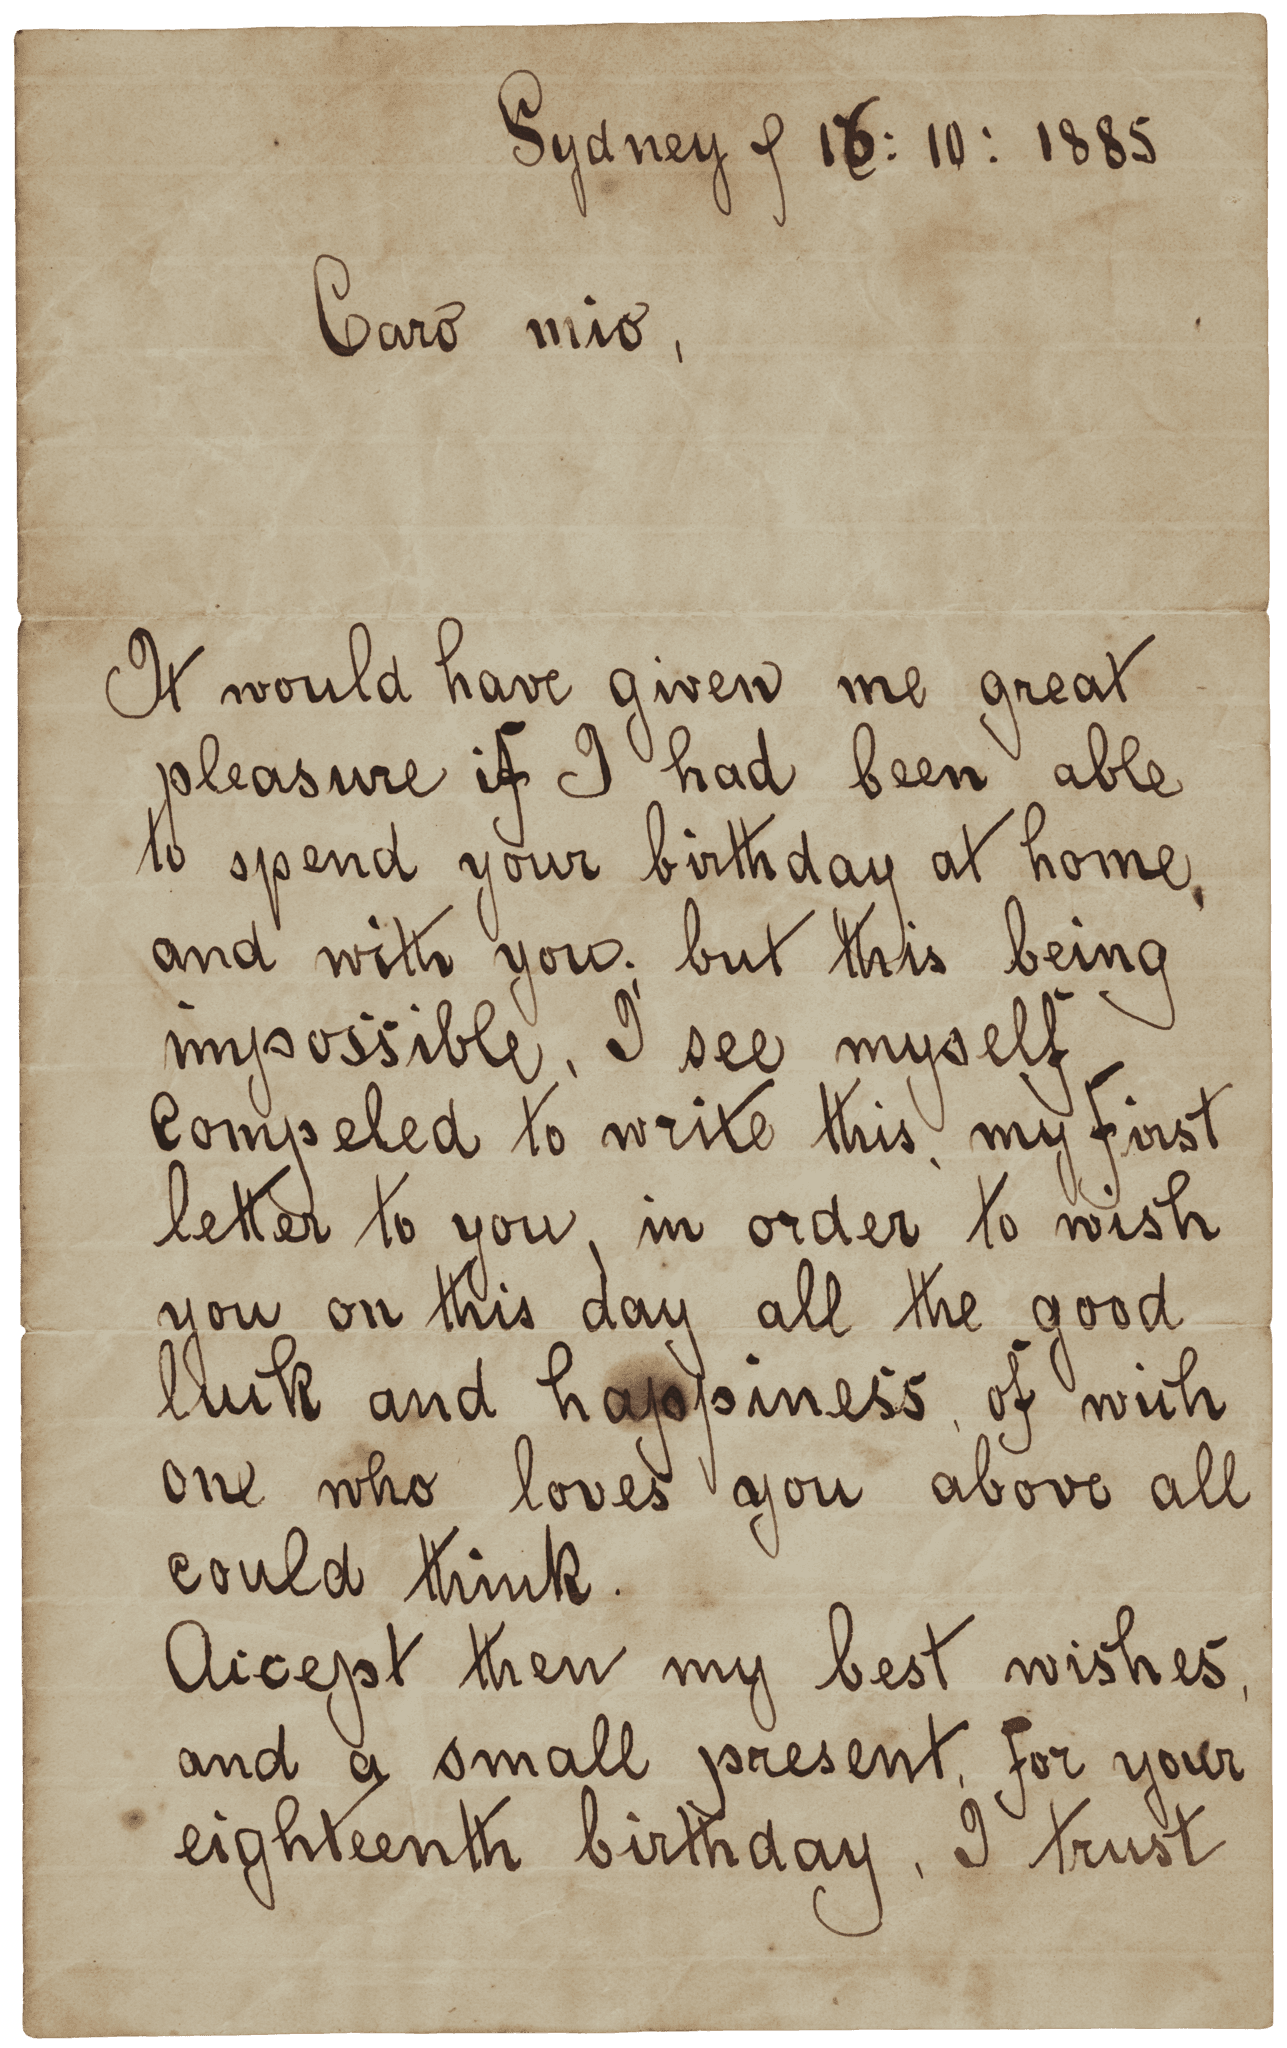 Sydney 16: 10: 1885
Caro mio,
It would have given me great
pleasure if I had been able
to spend your birthday at home,
and with you; but this being
impossible, I see myself
compeled to write this, my first
letter to you, in order to wish
you on this day all the good
luck and happiness, of wich
one who loves you above all
could think.
Accept then my best wishes,
and a small present, for your
eighteenth birthday, I trust